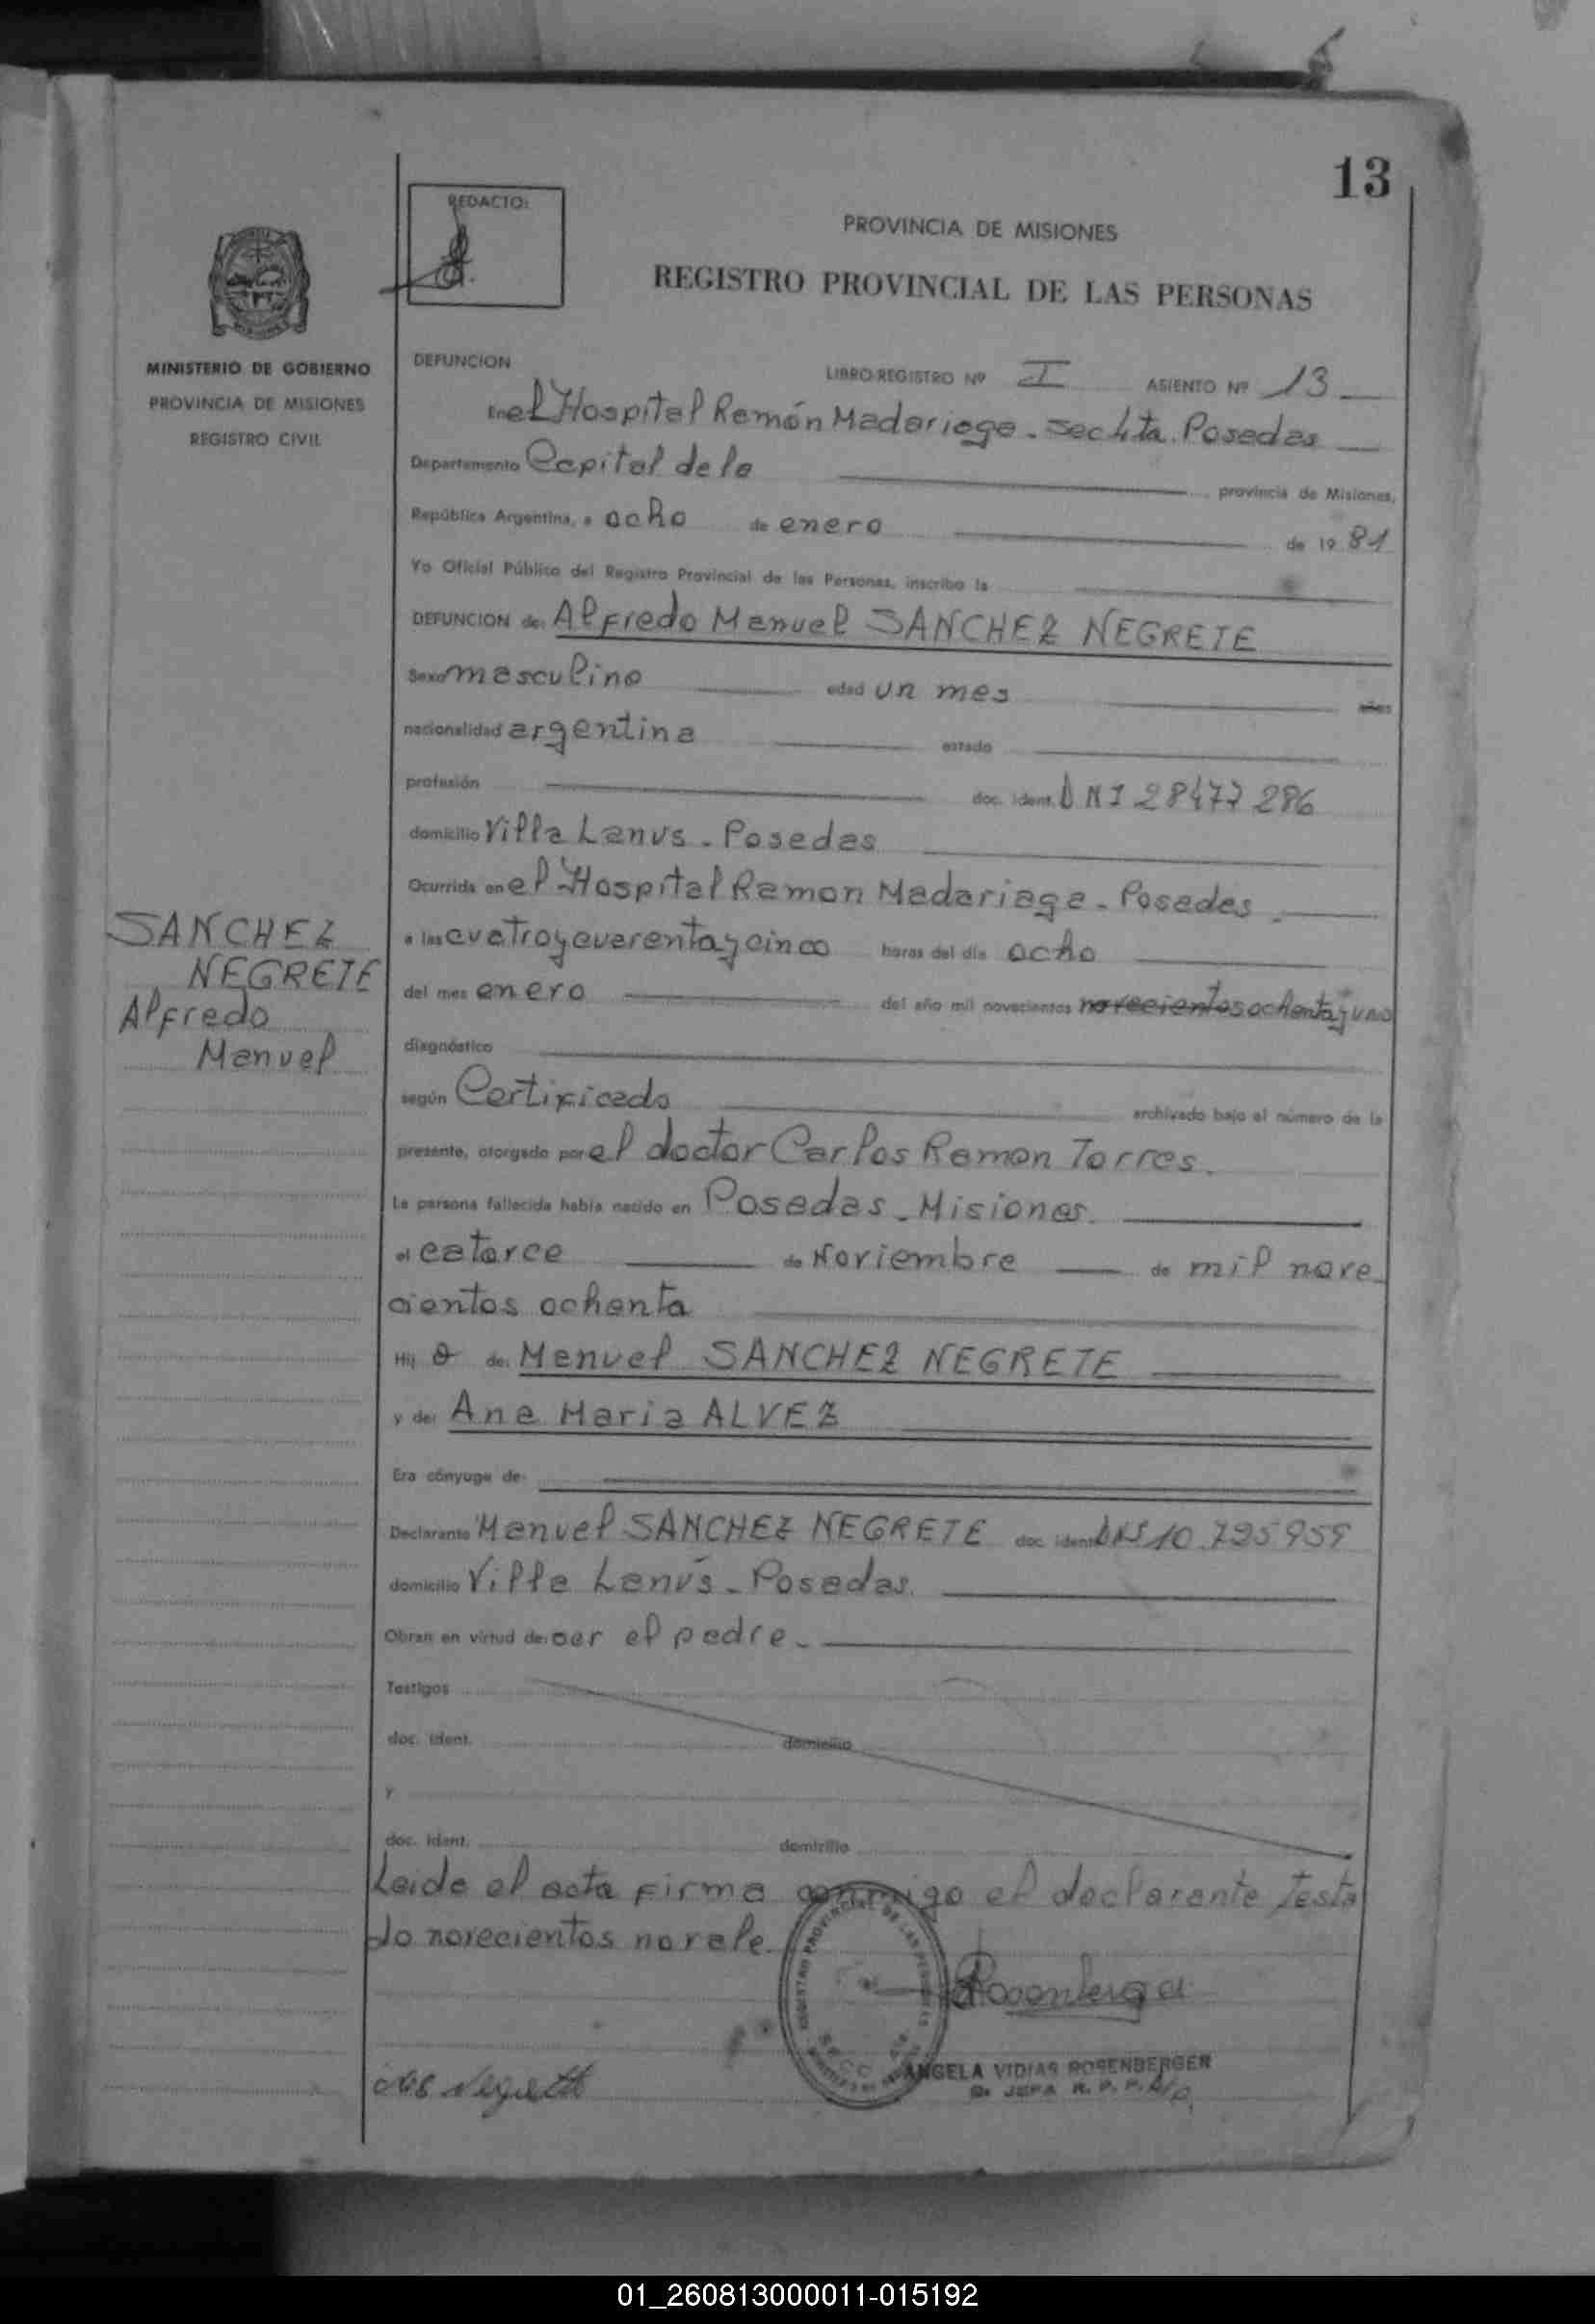 13
REDACTO:
PROVINCIA DE MISIONES
REGISTRO PROVINCIAL DE LAS PERSONAS
MINISTERIO DE GOBIERNO
PROVINCIA DE MISIONES
REGISTRO CIVIL
DEFUNCION
LIBRO-REGISTRO Nº I ASIENTO Nº 13
En el Hospital Ramón Madariaga - Sec 4ta. Posadas
Departamento Capital de la provincia de Misiones,
República Argentina, a ocho de enero de 19 81
Yo Oficial Público del Registro Provincial de las Personas, inscribo la
DEFUNCION de: Alfredo Manuel SANCHEZ NEGRETE
Sexo masculino edad un mes años
nacionalidad argentina estado
profesión doc. ident. DNI 28477286
domicilio Villa Lanus - Posadas
Ocurrida en el Hospital Ramon Madariaga - Posadas.
a las cuatro y cuarenta y cinco horas del día ocho
del mes enero del año mil novecientos novecientos ochenta y uno
diagnóstico
según Certificado archivado bajo el número de la
presente, otorgado por el doctor Carlos Ramon Torres.
La persona fallecida había nacido en Posadas - Misiones.
el catorce de Noviembre de mil nove
cientos ochenta
Hij o de: Manuel SANCHEZ NEGRETE
y de: Ana Maria ALVEZ
Era cónyuge de:
Declarante Manuel SANCHEZ NEGRETE doc. ident. DNI 10.795959
domicilio Villa Lanús - Posadas.
Obran en virtud de: ser el padre -
Testigos
doc. ident. domicilio
y
doc. ident. domicilio
Leida el acta firma conmigo el declarante Testa
do novecientos no vale.
SANCHEZ
NEGRETE
Alfredo
Manuel
REGISTRO PROVINCIAL DE LAS PERSONAS
Rosenberger
Negrete
ANGELA VIDIAS ROSENBERGER
JEFA R. P. P.
01_260813000011-015192